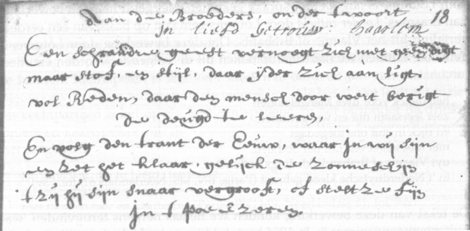 Aan de Broeders, onder 't woort 18
In liefd getrouw: Haarlem
Een schrandre geest vernoegt zich met geen digt
maar stof, en stijl, daar ijder zich aan ligt,
vol Reden, daar den mensch door wert berigt
de deugd te leere,
En volg den trant der Eeuw, waar in wij sijn
en zet het klaar, gelijck de zonneschijn
't zij zij sijn snaar vergrooft, of stelt ze fijn
in 't Poetzeren